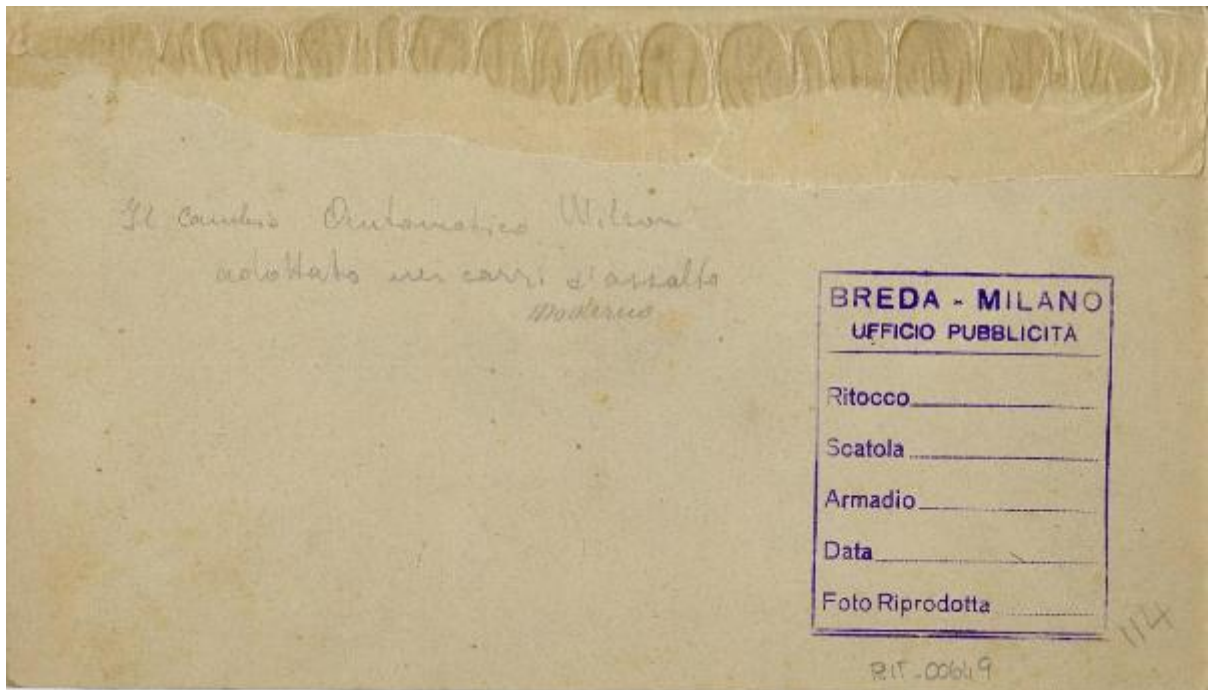 Il cambio Automatico Wilson
adottato nei carri d'assalto
moderno
BREDA - MILANO
UFFICIO PUBBLICITÀ
Ritocco
Scatola
Armadio
Data
Foto Riprodotta
114
RIT-00649